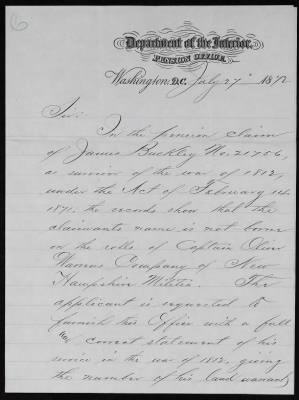 6
Department of the Interior,
PENSION OFFICE,
Washington D.C. July 27" 1872
Sir:
In the pension claim
of James Buckley No. 21756,
a survivor of the war of 1812,
under the Act of February 14
1871, the records show that the
claimants name is not borne
on the rolls of Captain Oliver
Warrens Company of New
Hampshire Militia. The
applicant is requested to
furnish this Office with a full
and correct statement of his
service in the war of 1812, giving
the number of his land warrant